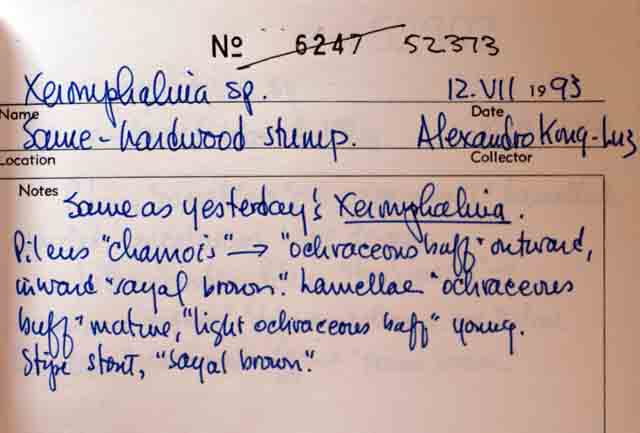 Nº 6247 52373
Xeromphalina sp. 12.VII 1993
Name Date
Same - hardwood stump. Alexandro Kong-Luz
Location Collector
Notes Same as yesterday's Xeromphalina.
Pileus "chamois" → "ochraceous buff" outward,
inward "sayal brown". Lamellae "ochraceous
buff" mature, "light ochraceous buff" young.
Stipe stout, "sayal brown".